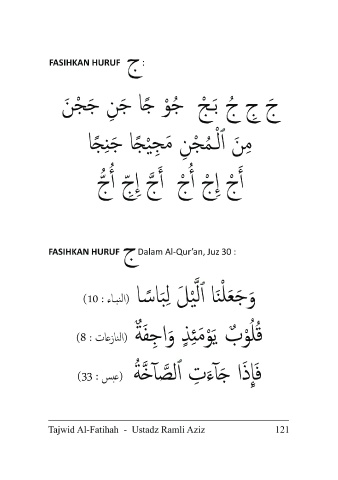 FASIHKAN HURUF ج :
جَ جِ جُ بَجْ جُوْ جًا جَنِ جَجْنَ
مِنَ ٱلْمُجْنِ مَجِيْجًا جَنِجًا
أَجْ إِجْ أُجْ أَجَّ إِجِّ أُجُّ
FASIHKAN HURUF ج Dalam Al-Qur'an, Juz 30 :
وَجَعَلْنَا ٱلَّيْلَ لِبَاسًا (النباء : 10)
قُلُوْبٌ يَوْمَئِذٍ وَاجِفَةٌ (النازعات : 8)
فَإِذَا جَآءَتِ ٱلصَّآخَّةُ (عبس : 33)
Tajwid Al-Fatihah - Ustadz Ramli Aziz 121